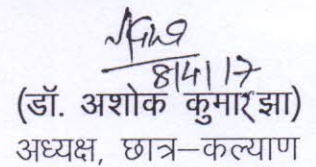 8/4/17
(डॉ. अशोक कुमार झा)
अध्यक्ष, छात्र–कल्याण